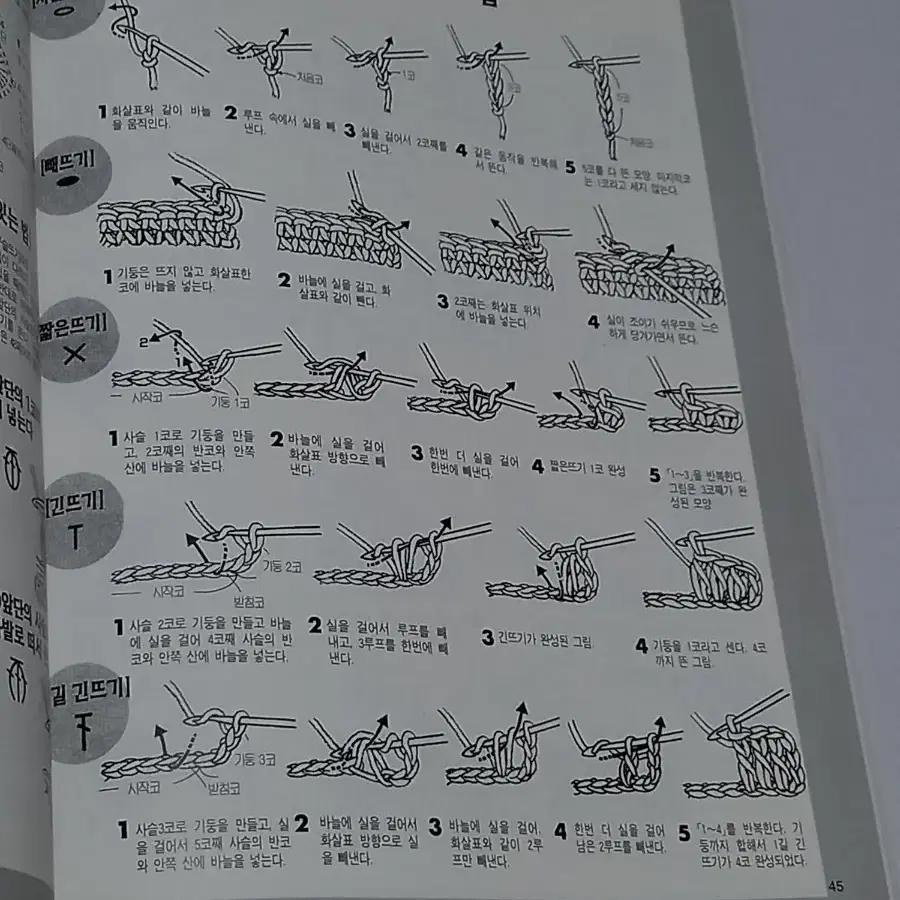 처음코
1코
3코
5코
처음코
1 화살표와 같이 바늘
을 움직인다.
2 루프 속에서 실을 빼
낸다.
3 실을 걸어서 2코째를
빼낸다.
4 같은 동작을 반복해
서 뜬다.
5 5코를 다 뜬 모양. 마지막코
는 1코라고 세지 않는다.
[빼뜨기]
1 기둥은 뜨지 않고 화살표한
코에 바늘을 넣는다.
2 바늘에 실을 걸고, 화
살표와 같이 뺀다.
3 2코째는 화살표 위치
에 바늘을 넣는다.
4 실이 조이기 쉬우므로 느슨
하게 당겨가면서 뜬다.
짧은뜨기]
2
1
시작코
기둥 1코
1 사슬 1코로 기둥을 만들
고, 2코째의 반코와 안쪽
산에 바늘을 넣는다.
2 바늘에 실을 걸어
화살표 방향으로 빼
낸다.
3 한번 더 실을 걸어
한번에 빼낸다.
4 짧은뜨기 1코 완성
5 「1~3」을 반복한다.
그림은 3코째가 완
성된 모양
[긴뜨기]
기둥 2코
시작코
받침코
1 사슬 2코로 기둥을 만들고 바늘
에 실을 걸어 4코째 사슬의 반
코와 안쪽 산에 바늘을 넣는다.
2 실을 걸어서 루프를 빼
내고, 3루프를 한번에 빼
낸다.
3 긴뜨기가 완성된 그림.
4 기둥을 1코라고 센다. 4코
까지 뜬 그림.
길 긴뜨기]
기둥 3코
시작코
받침코
1 사슬3코로 기둥을 만들고, 실
을 걸어서 5코째 사슬의 반코
와 안쪽 산에 바늘을 넣는다.
2 바늘에 실을 걸어서
화살표 방향으로 실
을 빼낸다.
3 바늘에 실을 걸어,
화살표와 같이 2루
프만 빼낸다.
4 한번 더 실을 걸어
남은 2루프를 빼낸다.
5 「1~4」를 반복한다. 기
둥까지 합해서 1길 긴
뜨기가 4코 완성되었다.
45